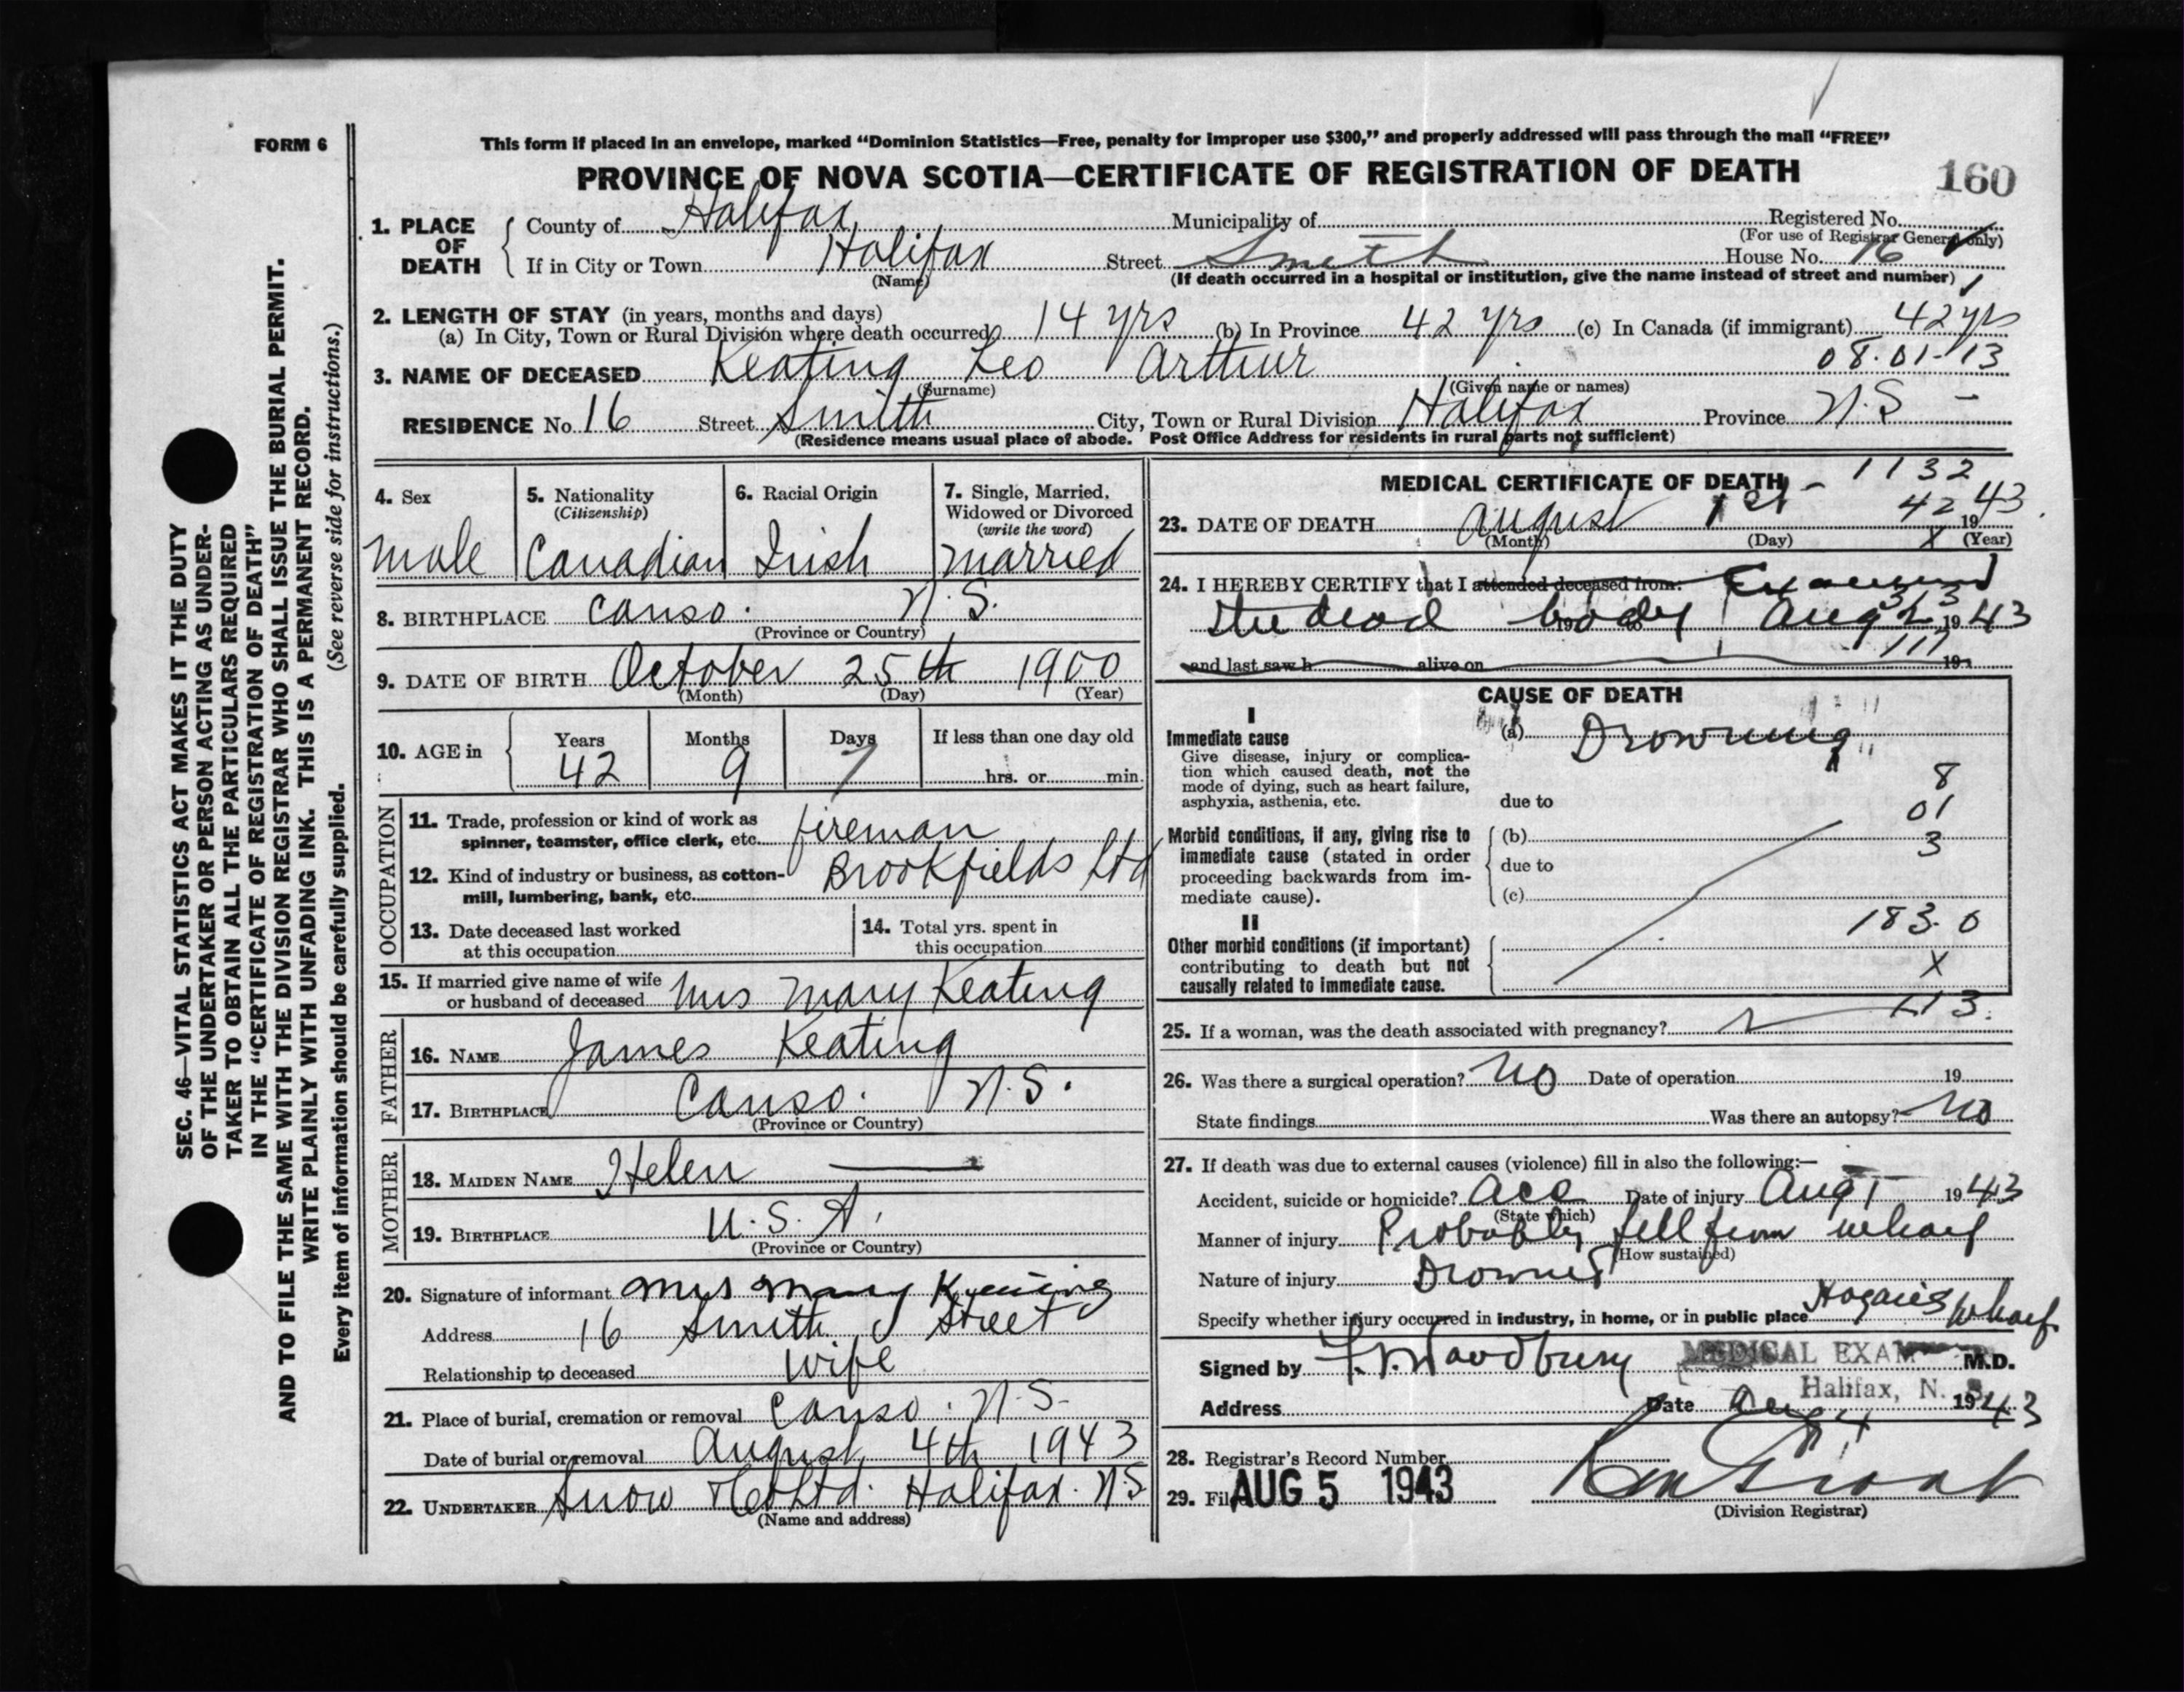 FORM 6
This form if placed in an envelope, marked “Dominion Statistics—Free, penalty for improper use $300,” and properly addressed will pass through the mail “FREE”
PROVINCE OF NOVA SCOTIA—CERTIFICATE OF REGISTRATION OF DEATH
160
1. PLACE OF DEATH
County of Halifax Municipality of Registered No.
(For use of Registrar General only)
If in City or Town Halifax Street Smith House No. 16
(Name) (If death occurred in a hospital or institution, give the name instead of street and number)
2. LENGTH OF STAY (in years, months and days)
(a) In City, Town or Rural Division where death occurred 14 yrs (b) In Province 42 yrs (c) In Canada (if immigrant) 42 yrs
08-01-13
3. NAME OF DECEASED Keating Leo Arthur
(Surname) (Given name or names)
RESIDENCE No. 16 Street Smith City, Town or Rural Division Halifax Province N.S -
(Residence means usual place of abode. Post Office Address for residents in rural parts not sufficient)
4. Sex
male
5. Nationality
(Citizenship)
Canadian
6. Racial Origin
Irish
7. Single, Married,
Widowed or Divorced
(write the word)
married
8. BIRTHPLACE Canso. N.S.
(Province or Country)
9. DATE OF BIRTH October 25th 1900
(Month) (Day) (Year)
10. AGE in
Years Months Days If less than one day old
42 9 7 hrs. or min.
OCCUPATION
11. Trade, profession or kind of work as
spinner, teamster, office clerk, etc. fireman
12. Kind of industry or business, as cotton-
mill, lumbering, bank, etc. Brookfields Ltd
13. Date deceased last worked
at this occupation
14. Total yrs. spent in
this occupation
15. If married give name of wife
or husband of deceased Mrs Mary Keating
FATHER
16. NAME James Keating
17. BIRTHPLACE Canso. N.S.
(Province or Country)
MOTHER
18. MAIDEN NAME Helen
19. BIRTHPLACE U.S.A.
(Province or Country)
20. Signature of informant Mrs Mary Keating
Address 16 Smith Street
Relationship to deceased wife
21. Place of burial, cremation or removal Canso. N.S.
Date of burial or removal August 4th 1943
22. UNDERTAKER Snow & Co Ltd. Halifax. N.S
(Name and address)
MEDICAL CERTIFICATE OF DEATH
1132
42
23. DATE OF DEATH August 1st 1943
(Month) (Day) (Year)
X
24. I HEREBY CERTIFY that I attended deceased from: Examined
the dead body Aug 2 1943
and last saw h alive on 19
CAUSE OF DEATH
I
Immediate cause
Give disease, injury or complica-
tion which caused death, not the
mode of dying, such as heart failure,
asphyxia, asthenia, etc.
(a) Drowning
due to
8
01
3
Morbid conditions, if any, giving rise to
immediate cause (stated in order
proceeding backwards from im-
mediate cause).
(b)
due to
(c)
II
Other morbid conditions (if important)
contributing to death but not
causally related to immediate cause.
183.0
X
113.
25. If a woman, was the death associated with pregnancy?
26. Was there a surgical operation? No Date of operation 19
State findings Was there an autopsy? No
27. If death was due to external causes (violence) fill in also the following:—
Accident, suicide or homicide? acc Date of injury Aug 1 1943
(State which)
Manner of injury Probably fell from wharf
(How sustained)
Nature of injury Drowned
Specify whether injury occurred in industry, in home, or in public place wharf
Signed by Woodbury MEDICAL EXAM M.D.
Halifax, N. S.
Address Date Aug 4 1943
28. Registrar's Record Number
29. Filed AUG 5 1943
(Division Registrar)
SEC. 46—VITAL STATISTICS ACT MAKES IT THE DUTY
OF THE UNDERTAKER OR PERSON ACTING AS UNDER-
TAKER TO OBTAIN ALL THE PARTICULARS REQUIRED
IN THE “CERTIFICATE OF REGISTRATION OF DEATH”
AND TO FILE THE SAME WITH THE DIVISION REGISTRAR WHO SHALL ISSUE THE BURIAL PERMIT.
WRITE PLAINLY WITH UNFADING INK. THIS IS A PERMANENT RECORD.
Every item of information should be carefully supplied. (See reverse side for instructions.)